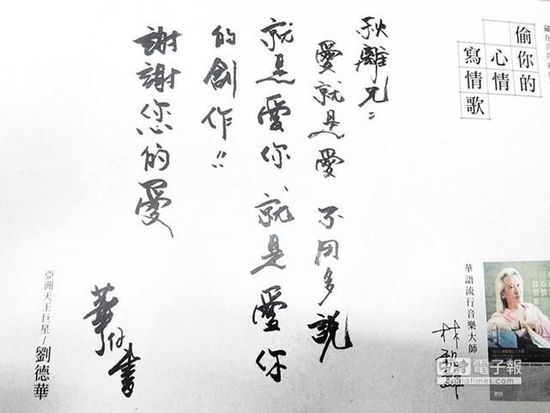 偷你的
心情
寫情歌
秋離兄：
愛就是愛 不用多說
就是愛你 就是愛你
的創作!!
謝謝您的愛
華仔書
亞洲天王巨星/劉德華
華語流行音樂大師
林秋離
電子報
chinatimes.com